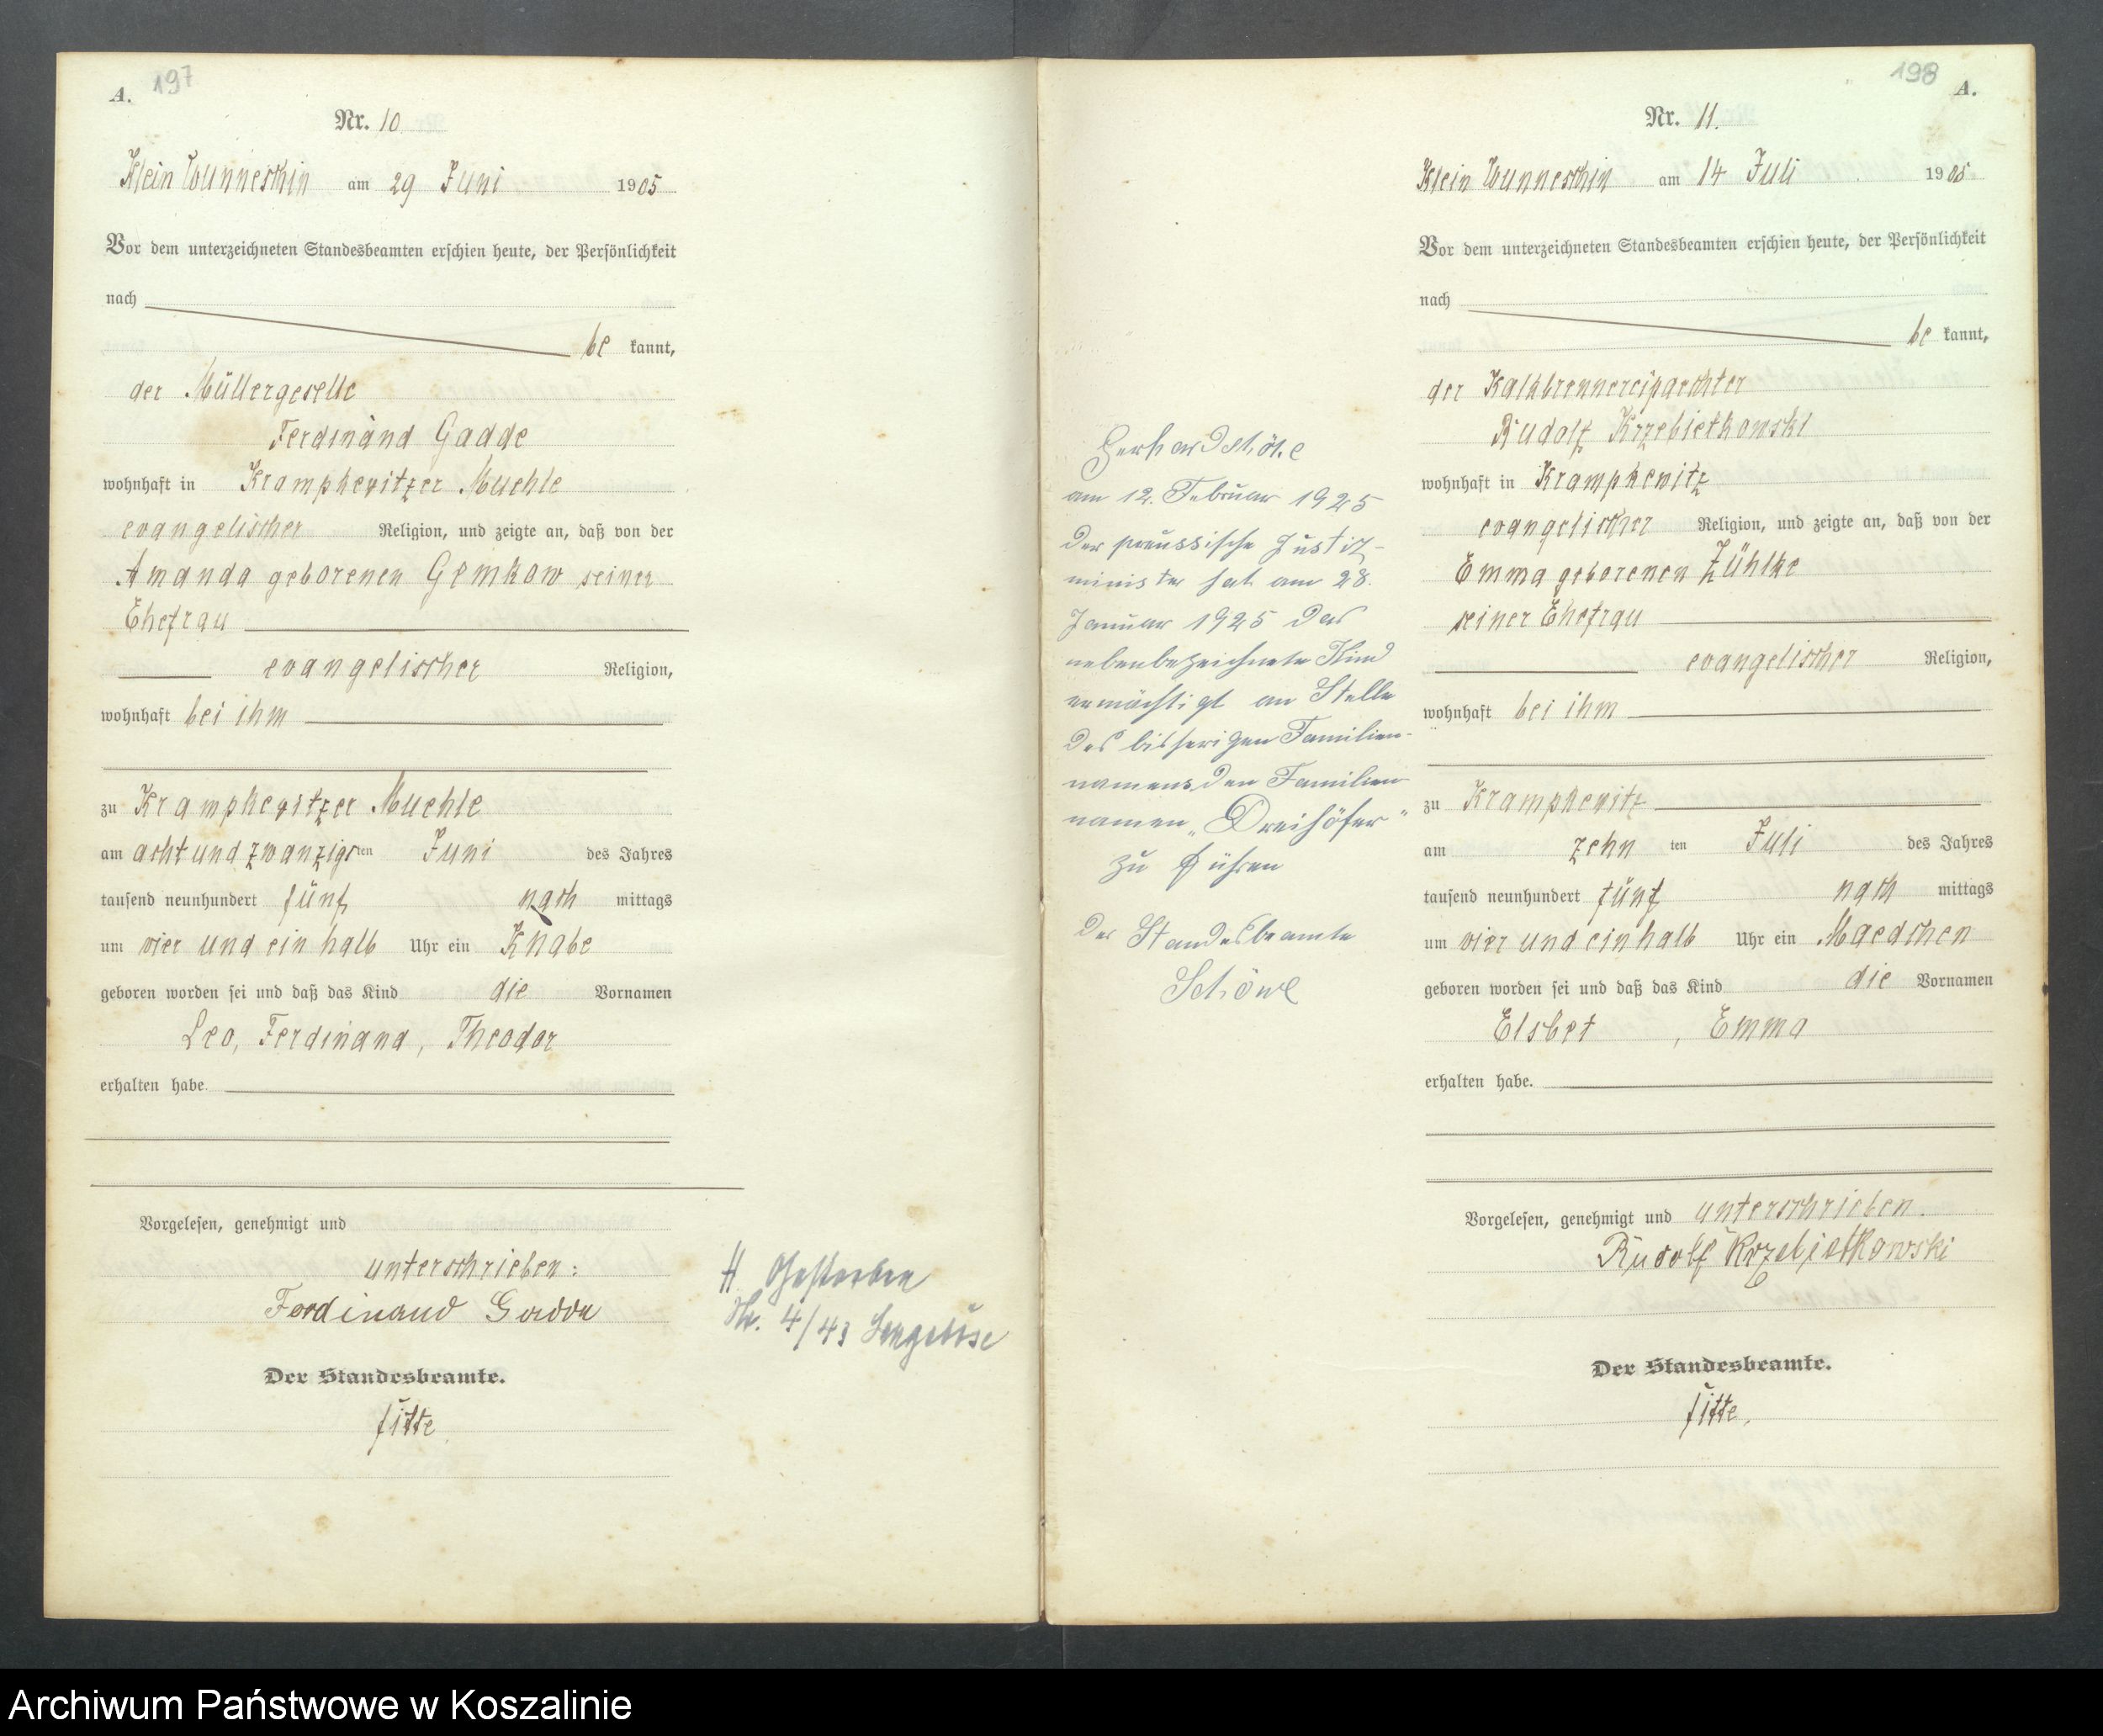 A. 197
Nr. 10.
Klein Wunneschin am 29 Juni 1905
Vor dem unterzeichneten Standesbeamten erschien heute, der Persönlichkeit
nach
be kannt,
der Müllergeselle
Ferdinand Gadde
wohnhaft in Krampkewitzer Muehle
evangelischer Religion, und zeigte an, daß von der
Amanda geborenen Gemkow seiner
Ehefrau
evangelischer Religion,
wohnhaft bei ihm
zu Krampkewitzer Muehle
am acht und zwanzigsten Juni des Jahres
tausend neunhundert fünf nach mittags
um vier und ein halb Uhr ein Knabe
geboren worden sei und daß das Kind die Vornamen
Leo, Ferdinand, Theodor
erhalten habe.
Vorgelesen, genehmigt und
unterschrieben:
Ferdinand Gadde
Der Standesbeamte.
Fitte
H. Gestorben
Nr. 4/43
198 A.
Nr. 11.
Klein Wunneschin am 14 Juli 1905
Vor dem unterzeichneten Standesbeamten erschien heute, der Persönlichkeit
nach
be kannt,
der Kalkbrennereipaechter
Rudolf Krzebietkowski
wohnhaft in Krampkewitz
evangelischer Religion, und zeigte an, daß von der
Emma geborenen Zühlke
seiner Ehefrau
evangelischer Religion,
wohnhaft bei ihm
zu Krampkewitz
am zehn ten Juli des Jahres
tausend neunhundert fünf nach mittags
um vier und ein halb Uhr ein Maedchen
geboren worden sei und daß das Kind die Vornamen
Elsbet, Emma
erhalten habe.
Vorgelesen, genehmigt und unterschrieben.
Rudolf Krzebietkowski
Der Standesbeamte.
Fitte.
am 12. Februar 1925
Der preussische Justiz-
minister hat am 28.
Januar 1925 das
nebenbezeichnete Kind
ermächtigt an Stelle
des bisherigen Familien-
namens den Familien
namen „Dreihöfer"
zu führen
Der Standesbeamte
Archiwum Państwowe w Koszalinie